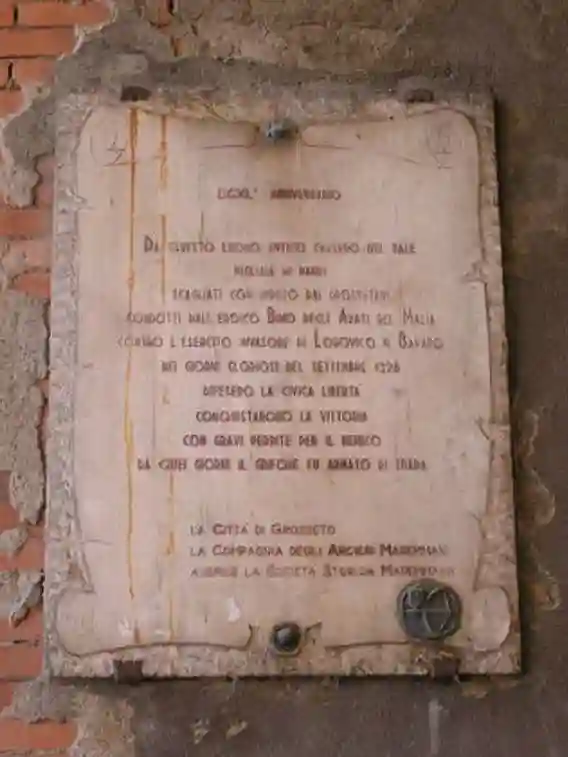 ANNIVERSARIO
DA QUESTO LUOGO ANTICO CASSERO DEL SALE
MIGLIAIA DI DARDI
SCAGLIATI CON IMPETO DAI GROSSETANI
CONDOTTI DALL'EROICO BINO DEGLI ABATI DEL MALIA
CONTRO L'ESERCITO INVASORE DI LODOVICO IL BAVARO
NEI GIORNI GLORIOSI DEL SETTEMBRE 1328
DIFESERO LA CIVICA LIBERTÀ
CONQUISTARONO LA VITTORIA
CON GRAVI PERDITE PER IL NEMICO
DA QUEI GIORNI IL GRIFONE FU ARMATO DI SPADA
LA CITTÀ DI GROSSETO
LA COMPAGNIA DEGLI ARCIERI MAREMMANI
AUSPICE LA SOCIETÀ STORICA MAREMMANA